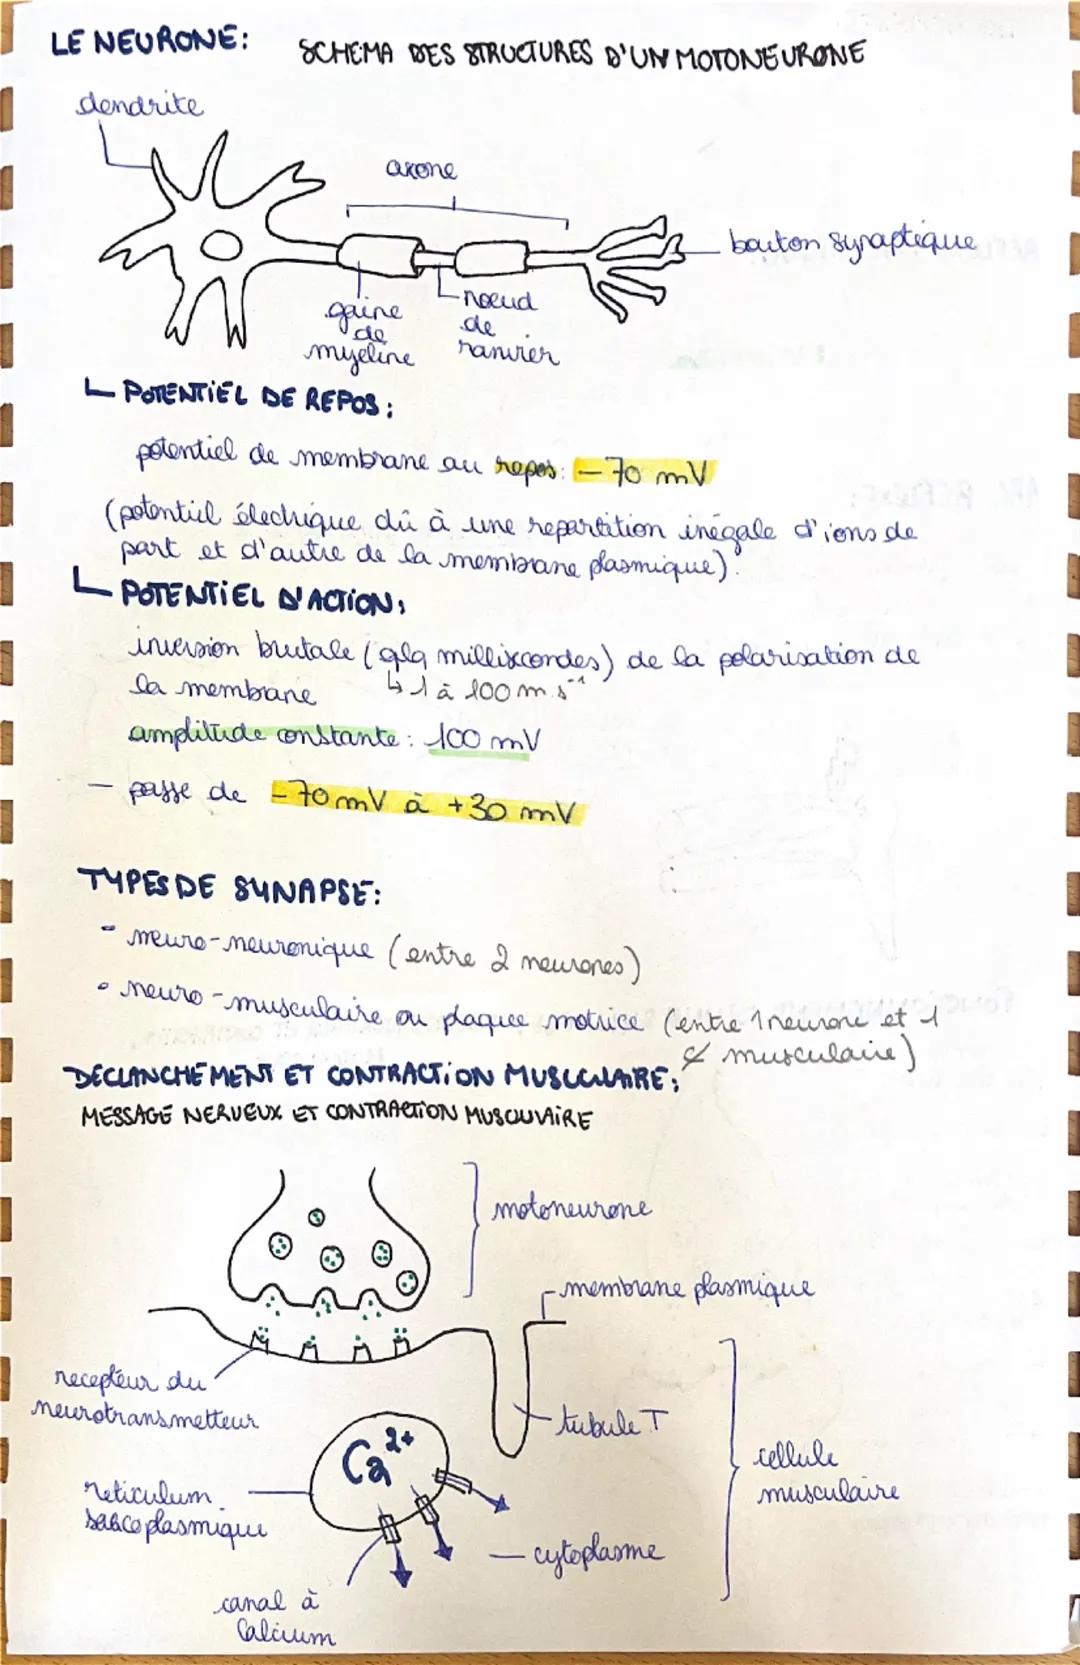 LE NEURONE:
SCHEMA DES STRUCTURES D'UN MOTONEURONE
dendrite
axone
bouton synaptique
gaine
de
myeline
noeud
de
ranvier
POTENTIEL DE REPOS:
potentiel de membrane au repos: -70 mV
(potentiel électrique dû à une repartition inégale d'ions de
part et d'autre de la membrane plasmique).
POTENTIEL D'ACTION:
inversion brutale (qlq millisecondes) de la polarisation de
la membrane ↳ 1 à 100 m.s⁻¹
amplitude constante: 100 mV
- passe de -70 mV à +30 mV
TYPES DE SYNAPSE:
- neuro-neuronique (entre 2 neurones)
• neuro-musculaire ou plaque motrice (entre 1 neurone et 1
musculaire)
DECLANCHEMENT ET CONTRACTION MUSCULAIRE:
MESSAGE NERVEUX ET CONTRACTION MUSCULAIRE
motoneurone
membrane plasmique
recepteur du
neurotransmetteur
tubule T
Ca²⁺
cellule
musculaire
reticulum
sarcoplasmique
cytoplasme
canal à
Calcium